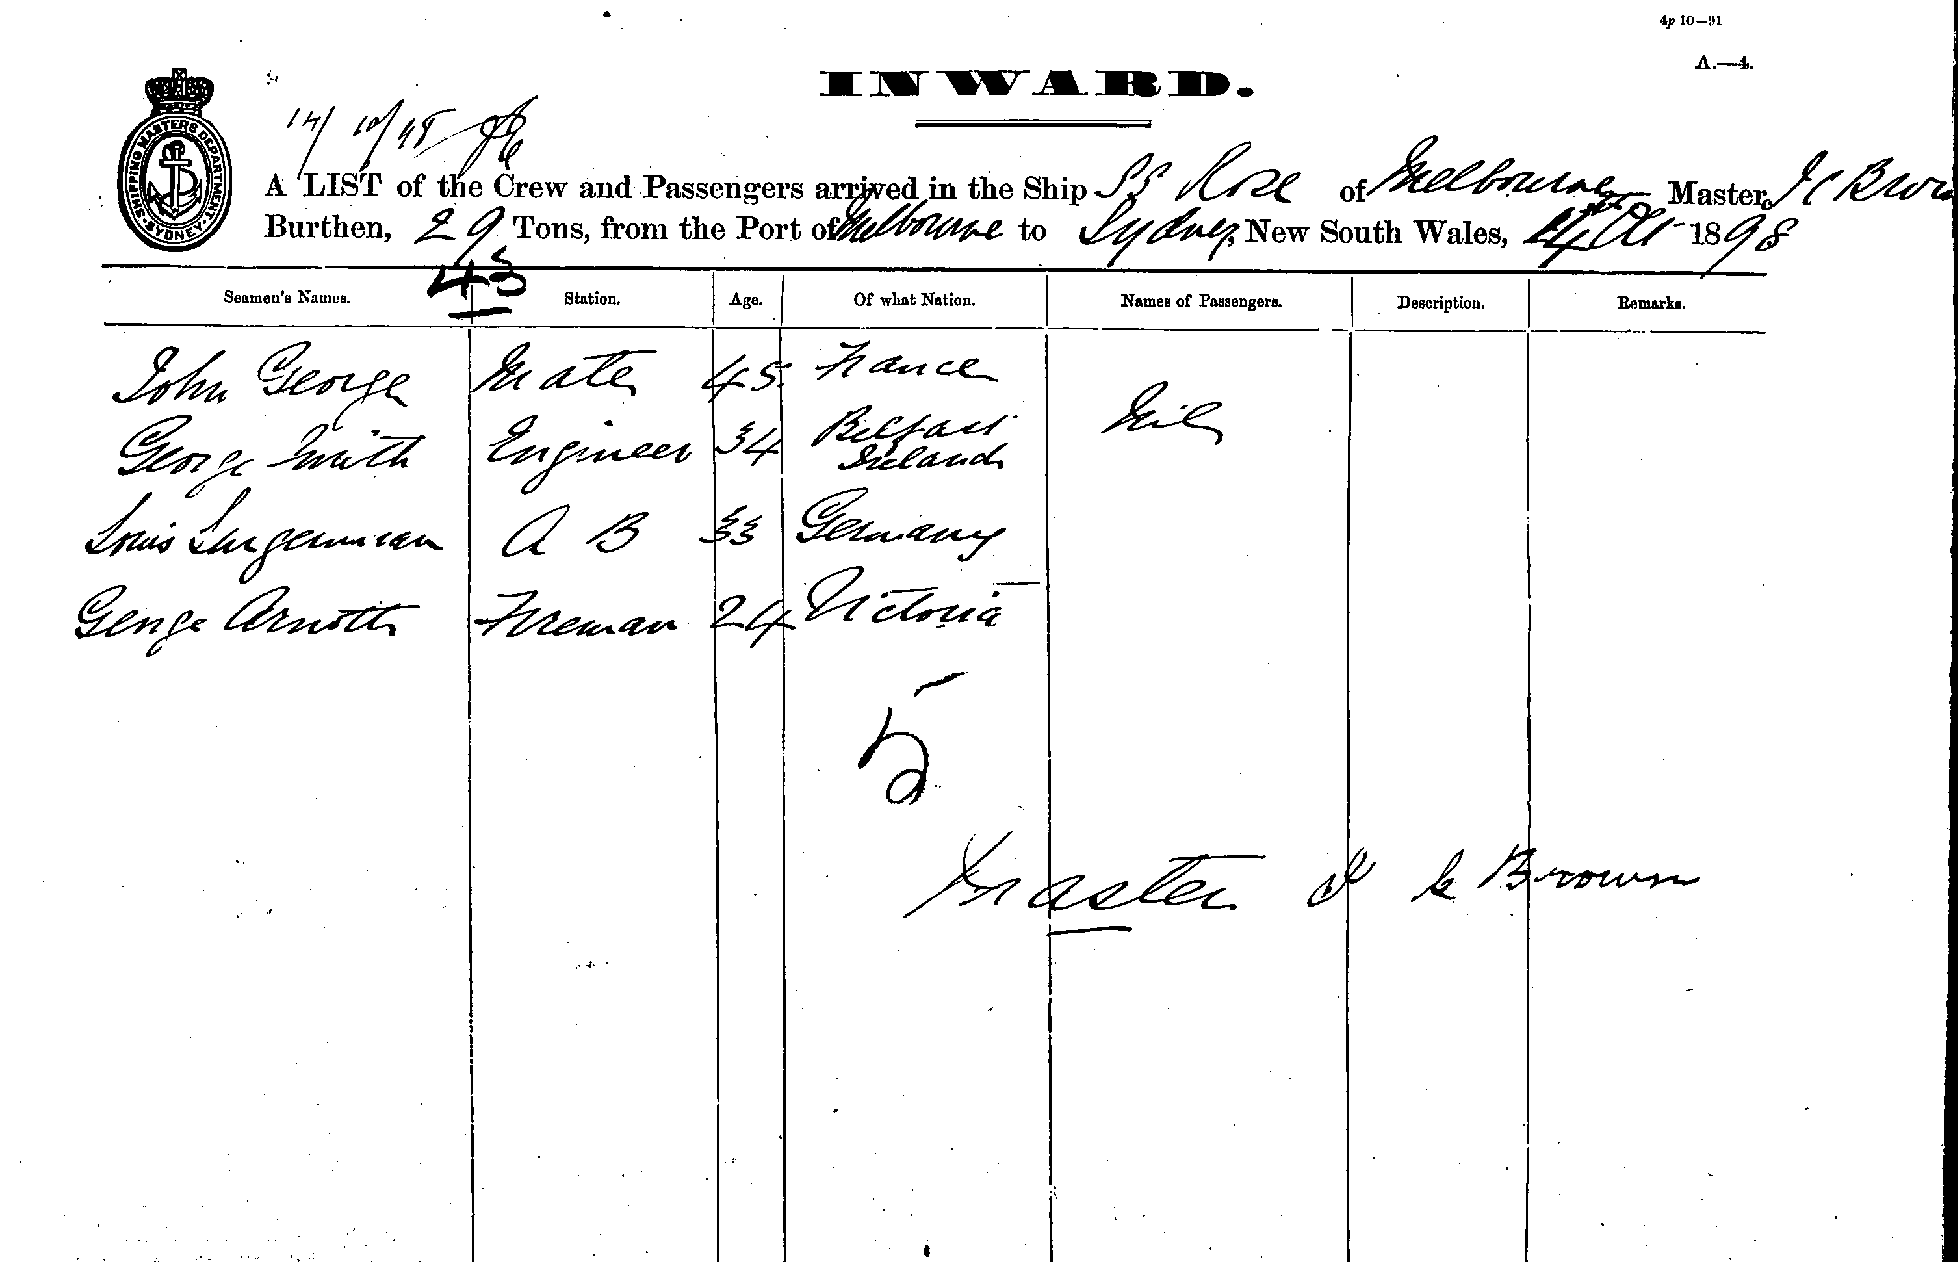 4p 10—91
A.—4.
INWARD.
SHIPPING MASTERS DEPARTMENT
SYDNEY
14/10/98
A LIST of the Crew and Passengers arrived in the Ship SS Rose of Melbourne Master, J C Brown
Burthen, 29 Tons, from the Port of Melbourne to Sydney, New South Wales, 14 Oct 1898
43
Seamen's Names. Station. Age. Of what Nation. Names of Passengers. Description. Remarks.
John George Mate 45 France
Nil
George Smith Engineer 34 Belfast Ireland
Louis A B 33 Germany
George Arnott Fireman 24 Victoria
5
Master J C Brown